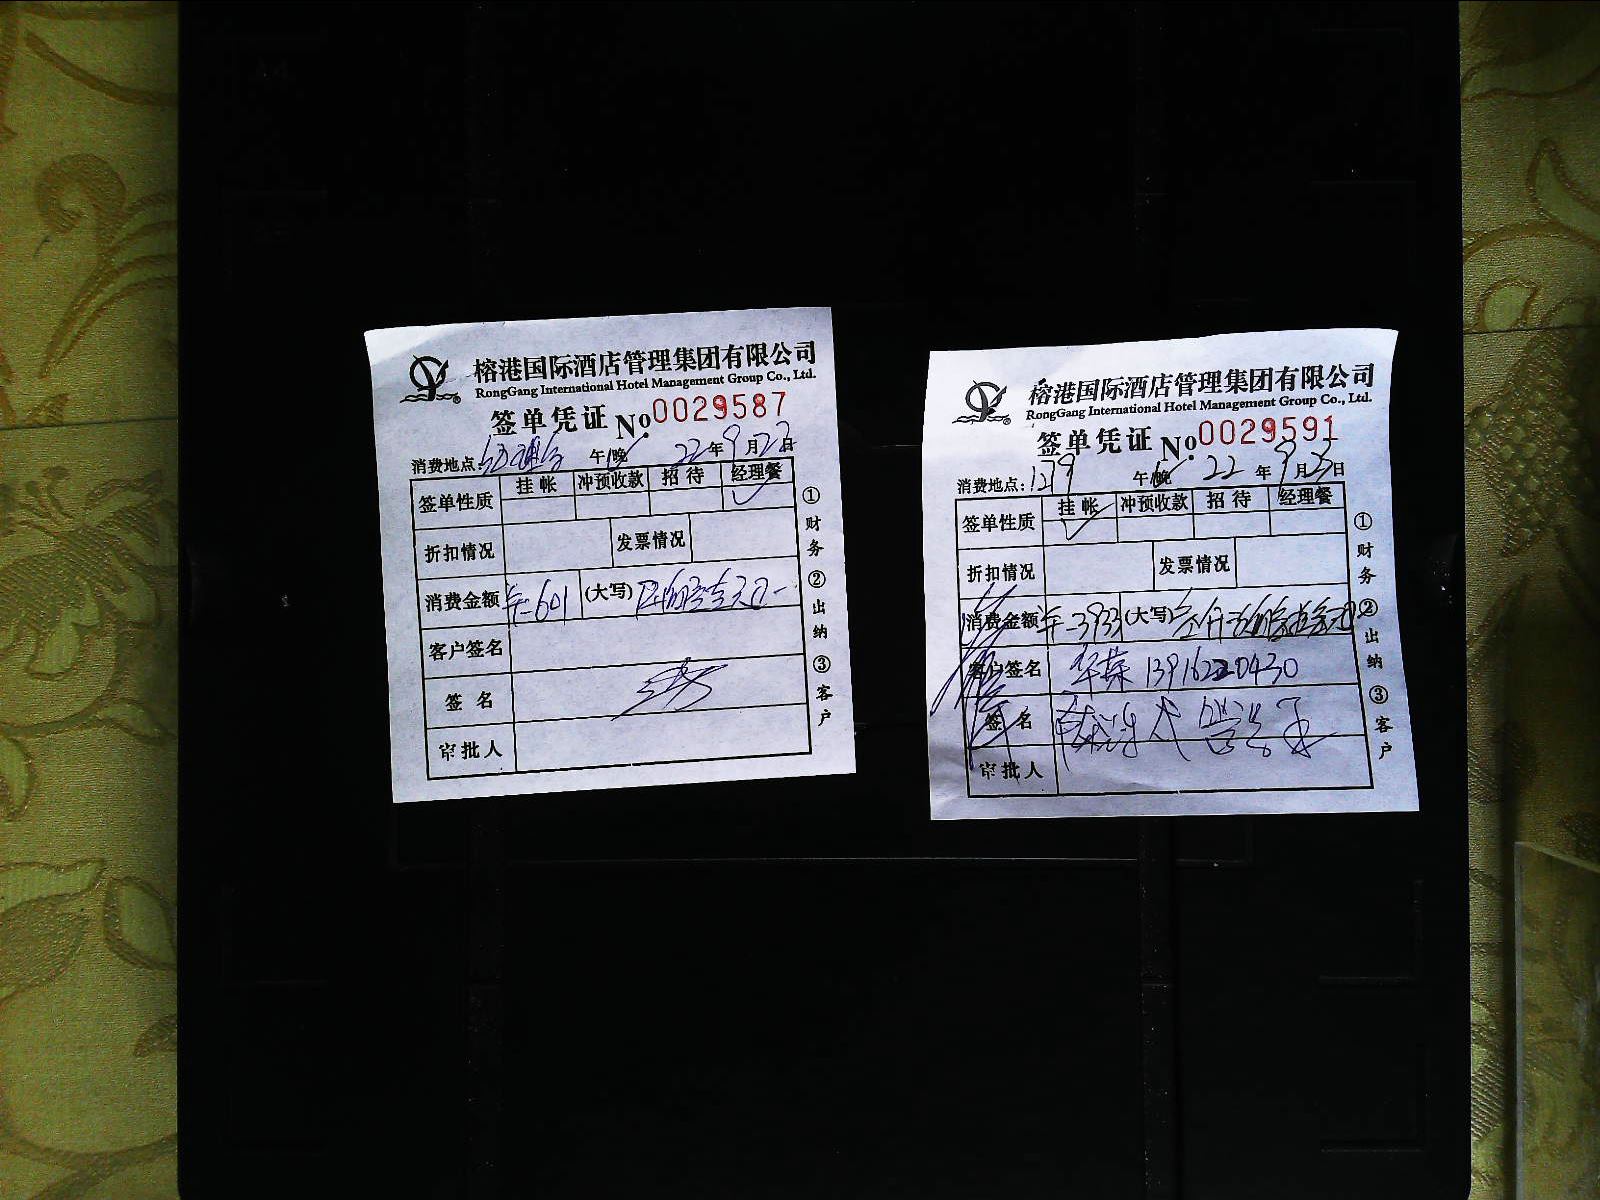 榕港国际酒店管理集团有限公司
RongGang International Hotel Management Group Co., Ltd.
签单凭证 No. 0029587
消费地点: 午/晚 22年9月22日
签单性质 挂帐 冲预收款 招待 经理餐
折扣情况 发票情况
消费金额 601 (大写)
客户签名
签名
审批人
①财务 ②出纳 ③客户
榕港国际酒店管理集团有限公司
RongGang International Hotel Management Group Co., Ltd.
签单凭证 No. 0029591
消费地点: 1279 午/晚 22年9月23日
签单性质 挂帐 冲预收款 招待 经理餐
折扣情况 发票情况
消费金额 3933 (大写)
客户签名 13916220430
签名
审批人
①财务 ②出纳 ③客户